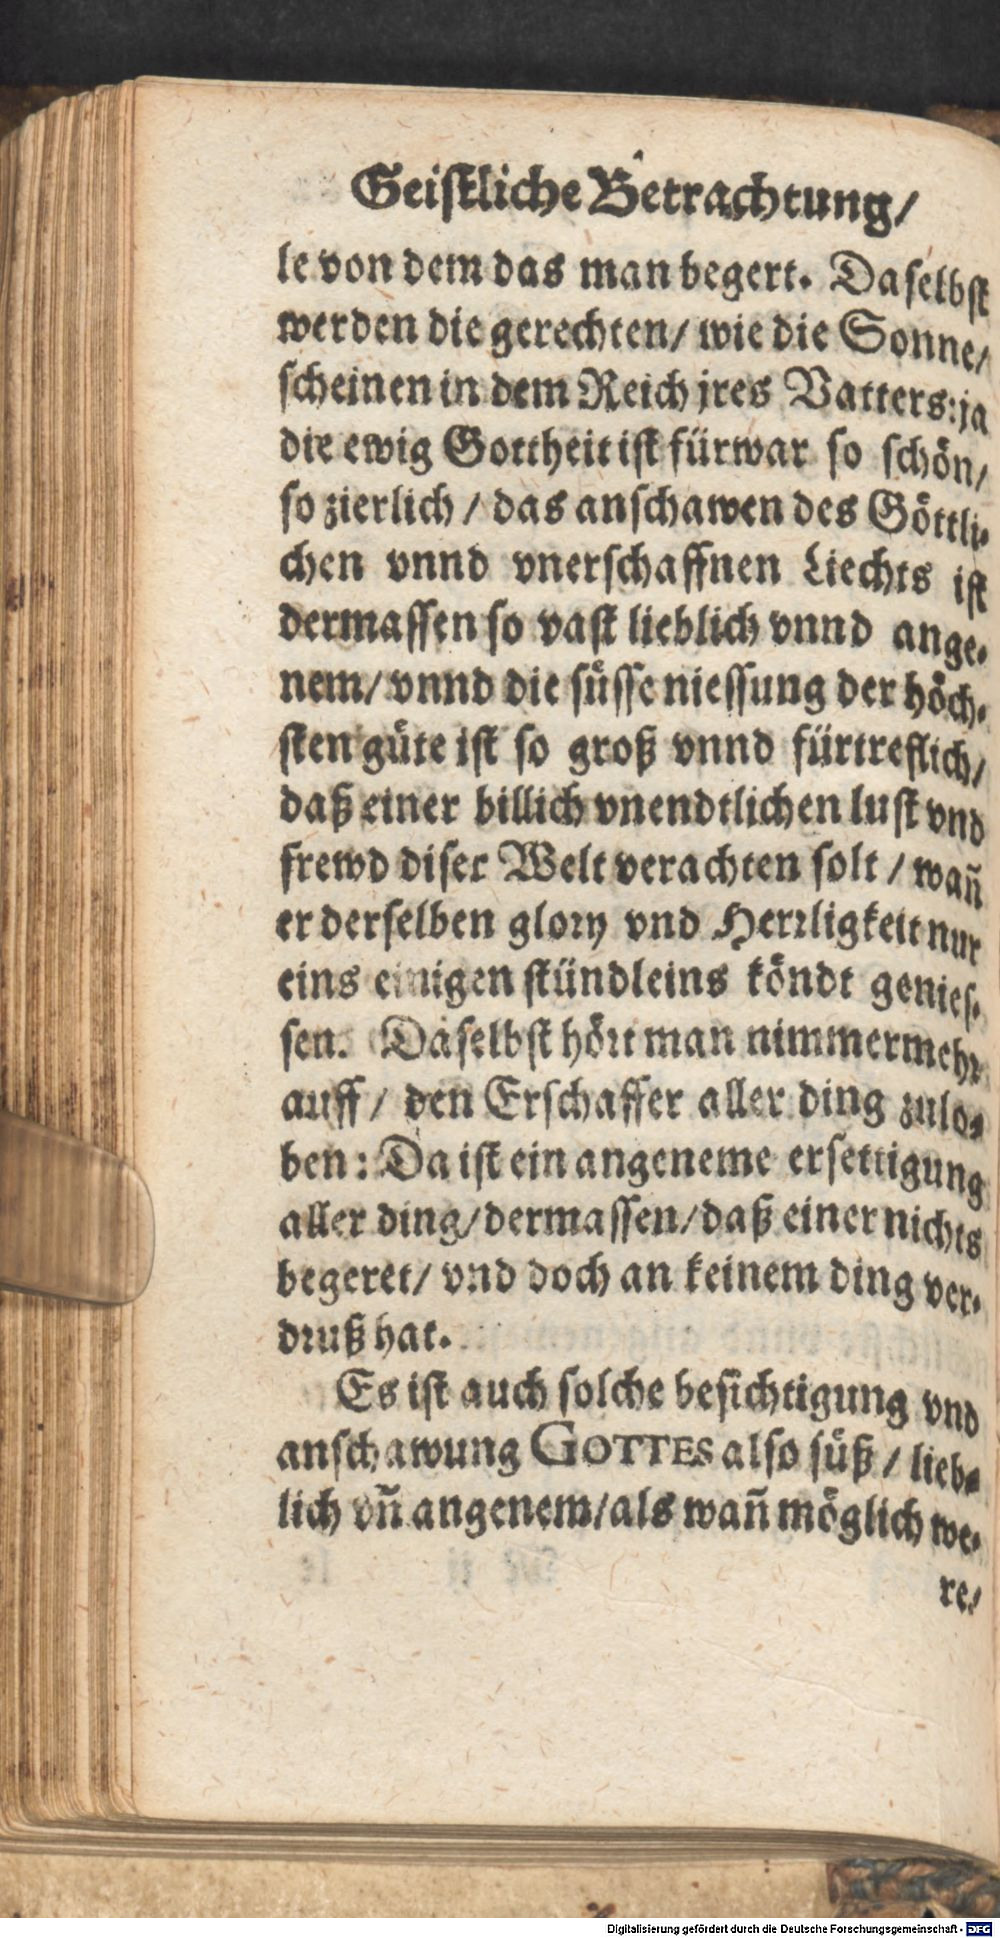 Geistliche Betrachtung/
le von dem das man begert. Daselbst
werden die gerechten/ wie die Sonne/
scheinen in dem Reich jres Vatters: ja
die ewig Gottheit ist fürwar so schön/
so zierlich / das anschawen des Göttli-
chen vnnd vnerschaffnen Liechts ist
dermassen so vast lieblich vnnd ange-
nem/ vnnd die süsse niessung der höch-
sten güte ist so groß vnnd fürtreflich/
daß einer billich vnendtlichen lust vnd
frewd diser Welt verachten solt / wañ
er derselben glory vnd Herrligkeit nur
eins einigen stündleins köndt genies-
sen. Daselbst hört man nimmermehr
auff / den Erschaffer aller ding zulo-
ben: Da ist ein angeneme ersettigung
aller ding/ dermassen/ daß einer nichts
begeret/ vnd doch an keinem ding ver-
druß hat.
Es ist auch solche besichtigung vnd
anschawung GOTTES also süß / lieb-
lich vñ angenem/ als wañ möglich we-
re/
Digitalisierung gefördert durch die Deutsche Forschungsgemeinschaft - DFG